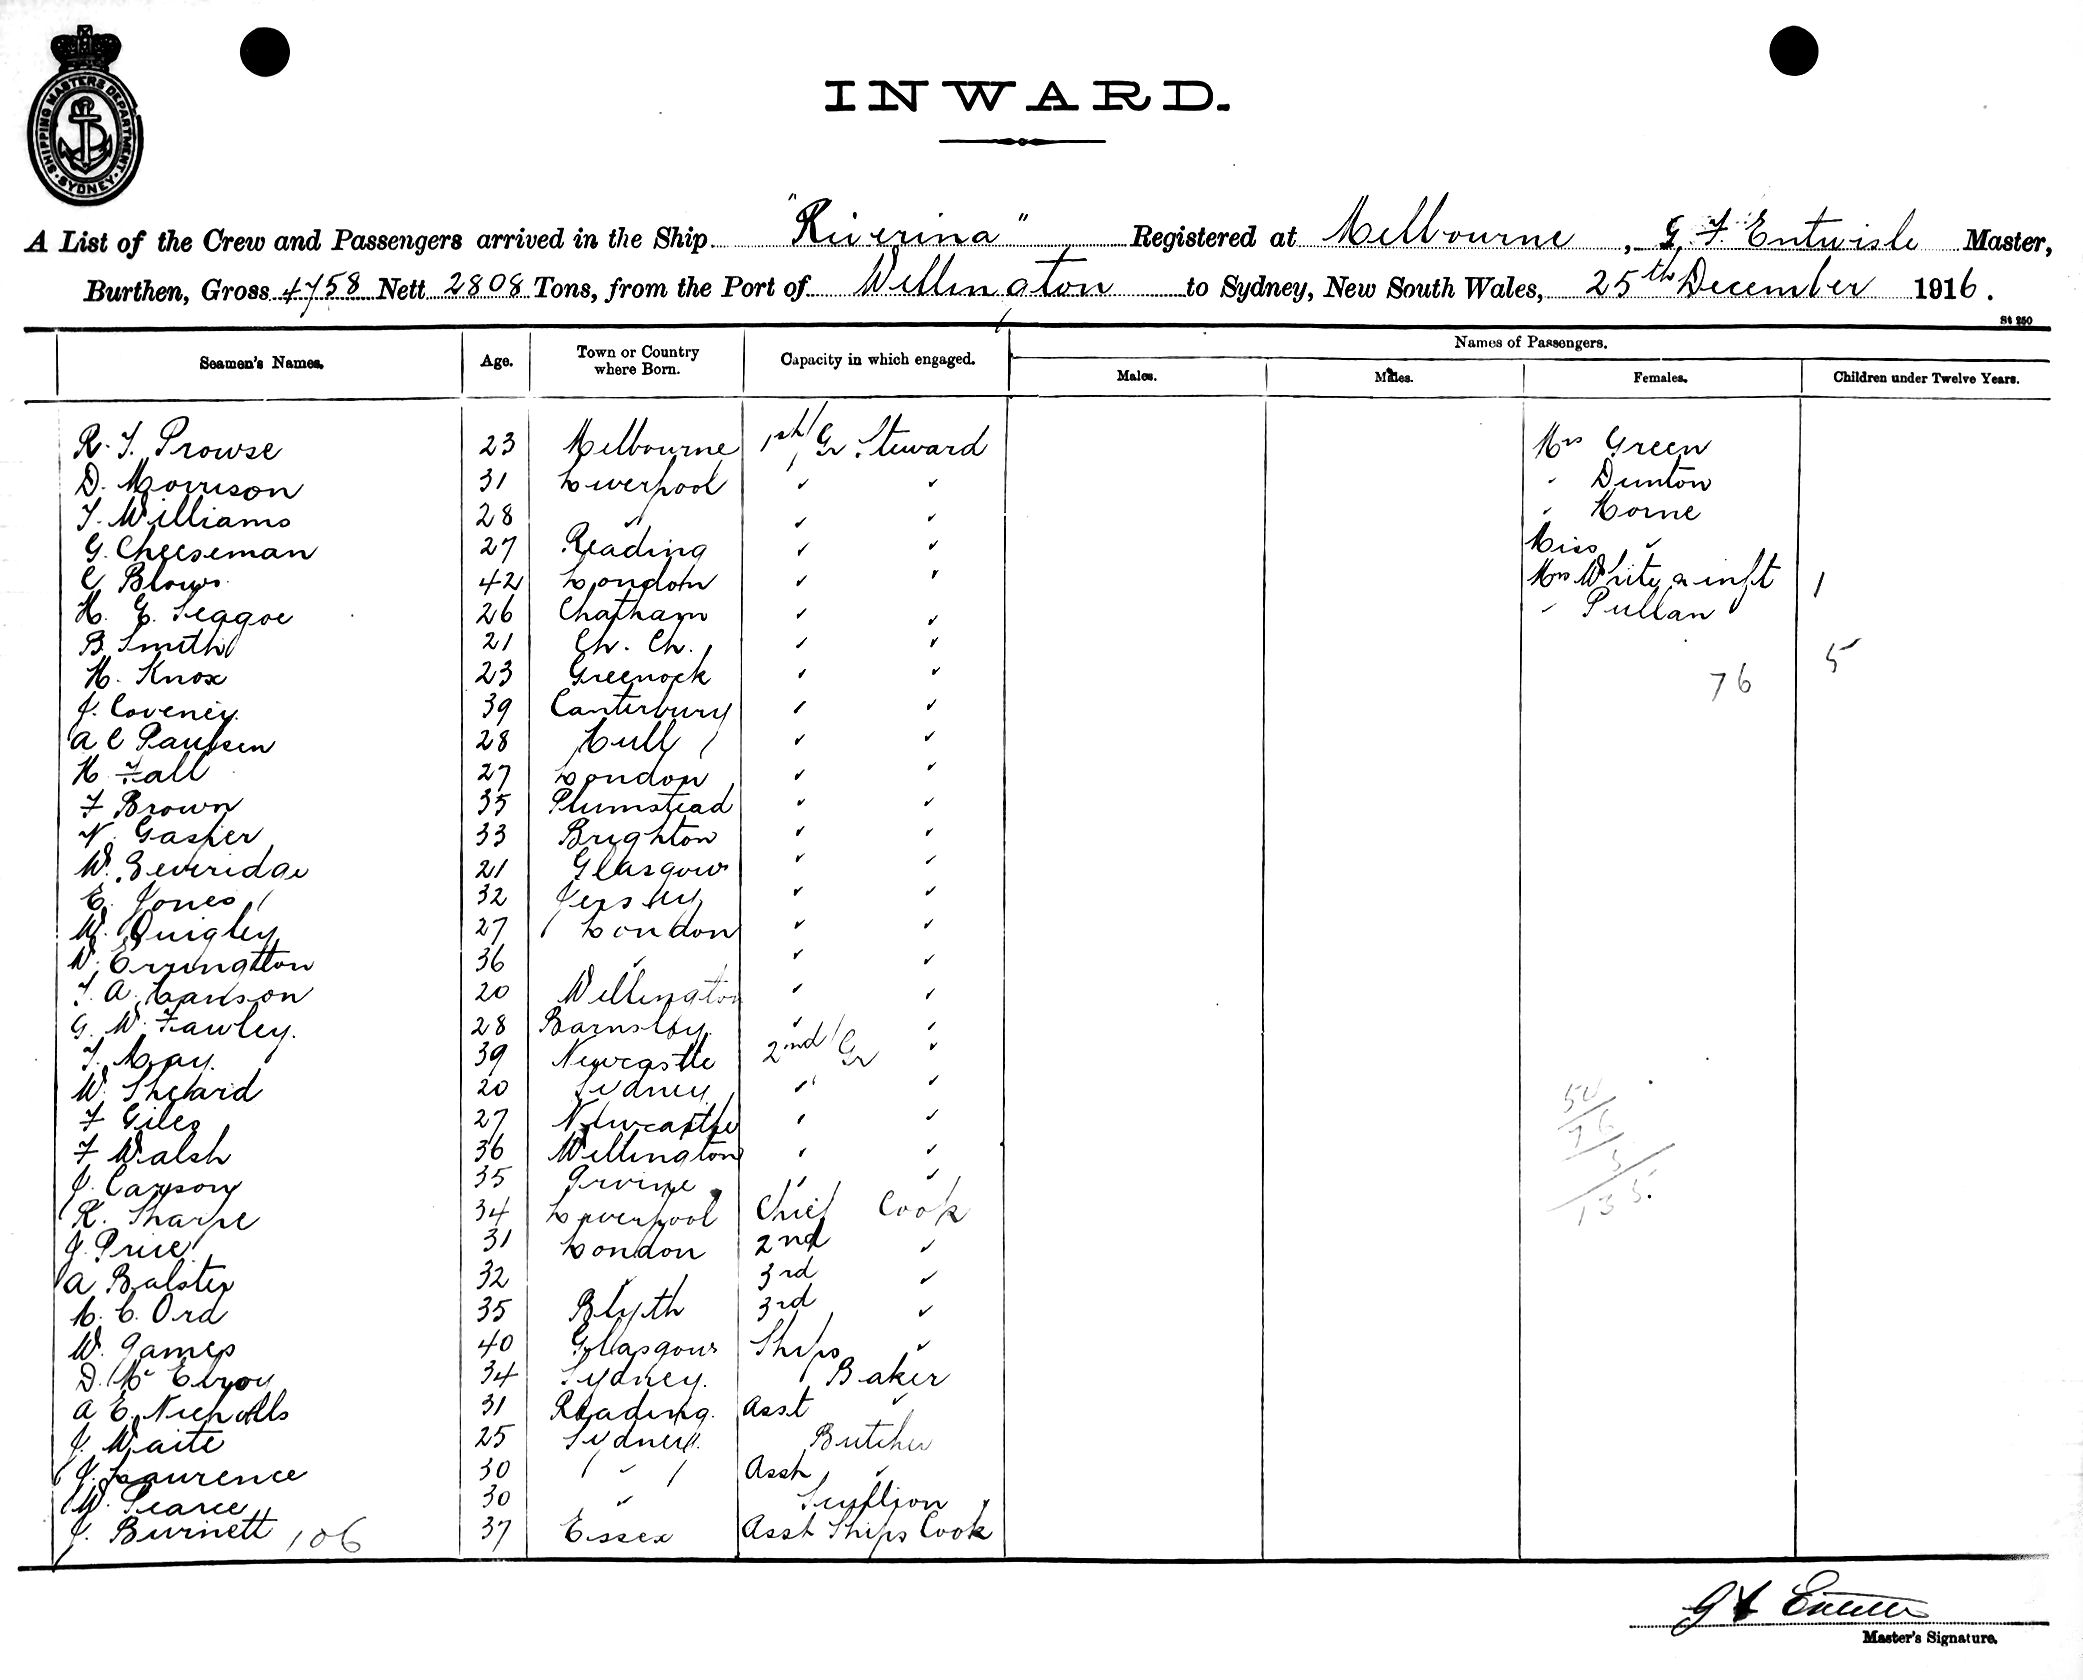 SHIPPING MASTERS DEPARTMENT · SYDNEY ·
INWARD.
A List of the Crew and Passengers arrived in the Ship "Riverina" Registered at Melbourne, G. F. Entwisle Master,
Burthen, Gross 4758 Nett 2808 Tons, from the Port of Wellington to Sydney, New South Wales, 25th December 1916.
St 250
Seamen's Names. Age. Town or Country where Born. Capacity in which engaged. Names of Passengers.
Males. Males. Females. Children under Twelve Years.
R. F. Prowse 23 Melbourne 1st/Gr Steward Mrs Green
D. Morrison 31 Liverpool " " " Dunton
T. Williams 28 " " " " Horne
G. Cheeseman 27 Reading " " Miss "
C Blows 42 London " " Mrs White & inft 1
H. G. Seggoe 26 Chatham " " " Pullan
B Smith 21 Ch. Ch. " " 5
H. Knox 23 Greenock " " 76
J. Coveney 39 Canterbury " "
A C Paulsen 28 Hull " "
H Fall 27 London " "
F Brown 35 Plumstead " "
N. Gasper 33 Brighton " "
W. Beveridge 21 Glasgow " "
E. Jones 32 Jersey " "
W. Quigley 27 London " "
W. Errington 36 " " "
T. A. Hanson 20 Wellington " "
G. W. Fawley. 28 Barnsley " "
T. May. 39 Newcastle 2nd/Gr "
W. Shepard 20 Sydney " "
F Giles 27 Newcastle " " 54
F Walsh 36 Wellington " " 76
J. Carson 35 Irvine " " 5
R. Sharpe 34 Liverpool Chief Cook 135.
J. Price 31 London 2nd "
A Balster 32 " 3rd "
C. Ord 35 Blyth 3rd "
W. James 40 Glasgow Ships "
D. Mc Elroy 34 Sydney. Baker
A E. Nicholls 31 Reading. Asst "
J. Waite 25 Sydney. Butcher
J. Laurence 30 " Asst "
W. Pearce 30 " Scullion
J. Burnett 106 37 Essex Asst Ships Cook
Master's Signature.